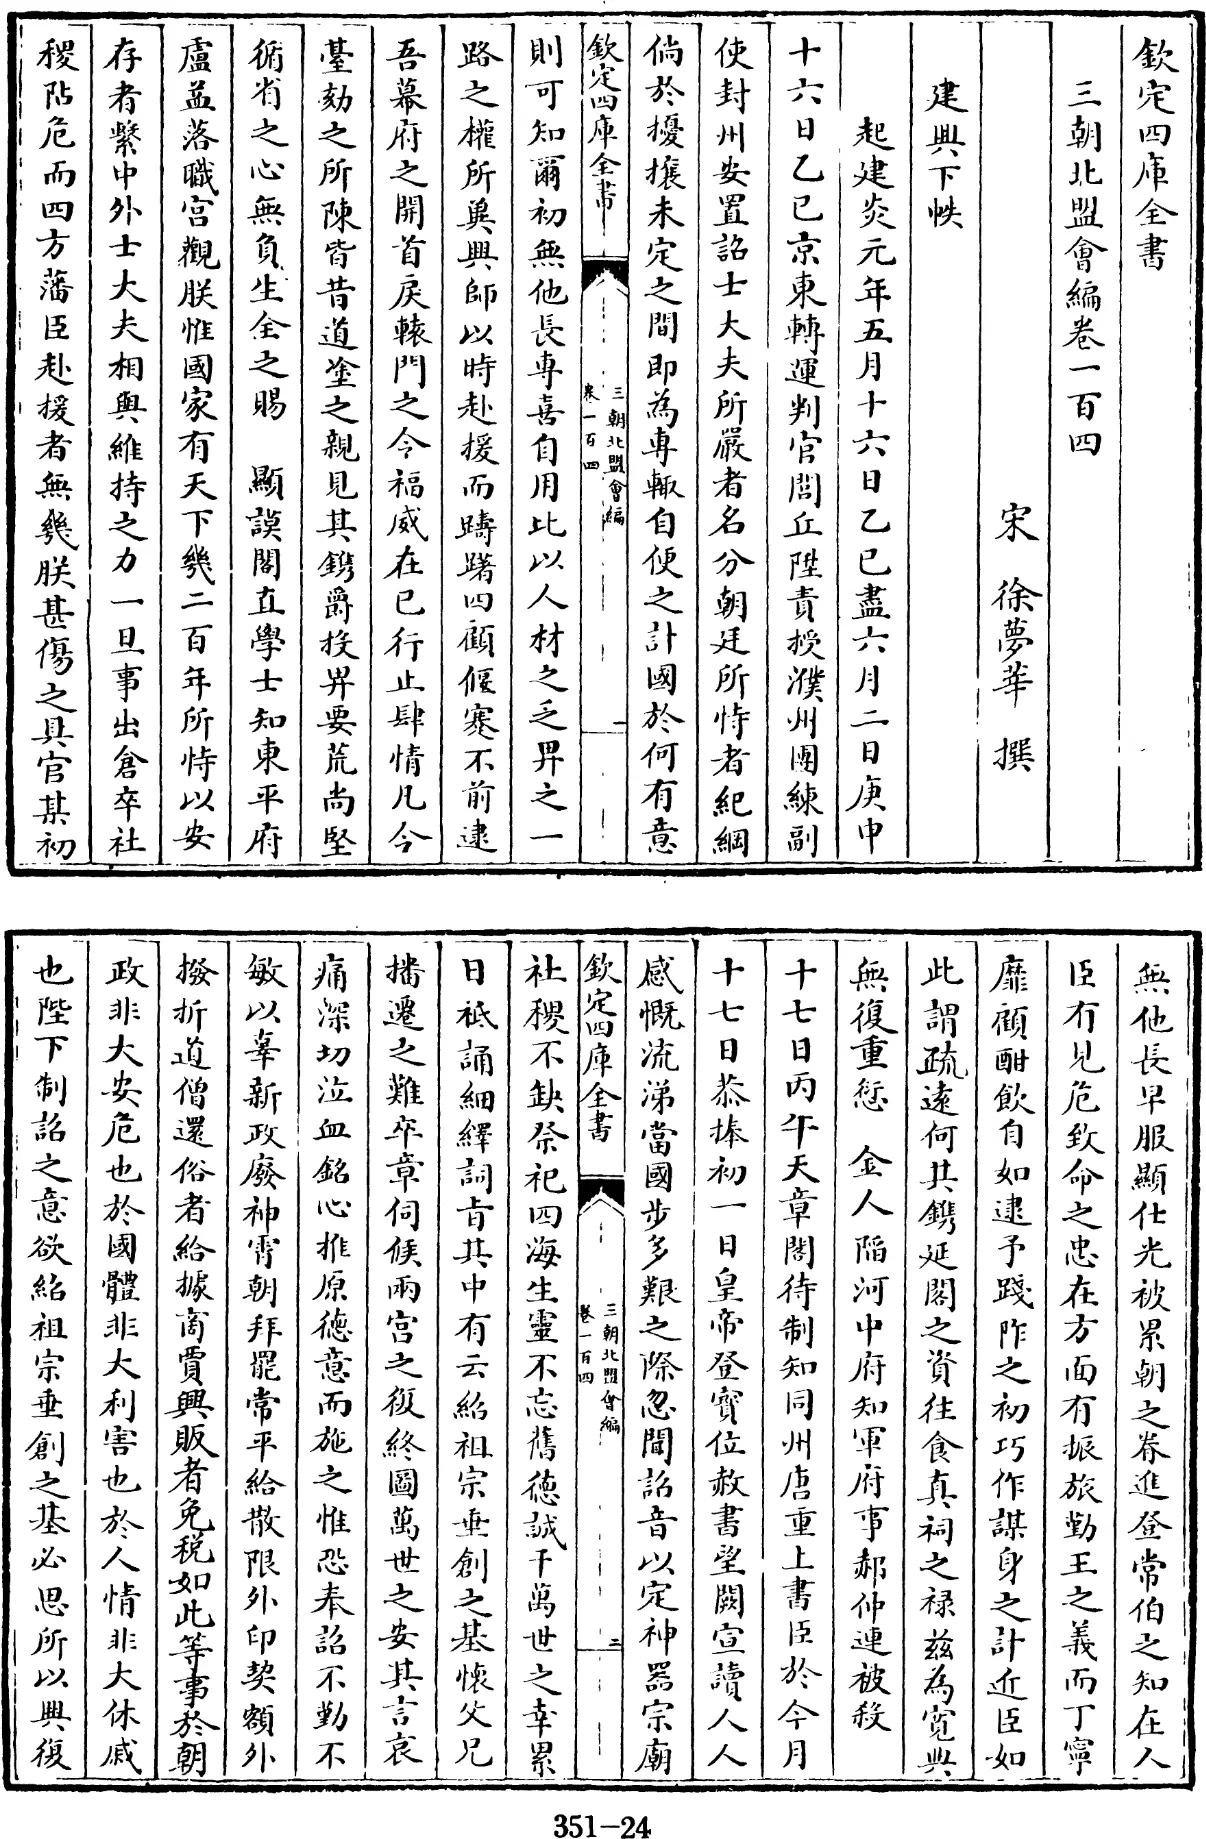 欽定四庫全書
三朝北盟會編卷一百四
宋　徐夢莘　撰
建興下帙
起建炎元年五月十六日乙巳盡六月二日庚申
十六日乙巳京東轉運判官閭丘陞責授濮州團練副
使封州安置詔士大夫所嚴者名分朝廷所恃者紀綱
倘於擾攘未定之間即為專輒自便之計國於何有意
欽定四庫全書
三朝北盟會編
卷一百四
一
則可知爾初無他長專喜自用比以人材之乏畀之一
路之權所兾興師以時赴援而躊躇四顧偃蹇不前逮
吾幕府之開首戾轅門之令福威在已行止肆情凡今
臺劾之所陳皆昔道塗之親見其鐫爵投畀要荒尚堅
循省之心無負生全之賜　顯謨閣直學士知東平府
盧益落職宫觀朕惟國家有天下幾二百年所恃以安
存者繄中外士大夫相與維持之力一旦事出倉卒社
稷阽危而四方藩臣赴援者無幾朕甚傷之具官某初
無他長早服顯仕光被累朝之眷進登常伯之知在人
臣有見危致命之忠在方面有振旅勤王之義而丁寧
靡顧酣飲自如逮予踐阼之初巧作謀身之計近臣如
此謂疏逺何其鐫延閣之資往食真祠之禄兹為寛典
無復重愆　金人陷河中府知軍府事郝仲連被殺
十七日丙午天章閣待制知同州唐重上書臣於今月
十七日恭捧初一日皇帝登寳位赦書望闕宣讀人人
感慨流涕當國步多艱之際忽聞詔音以定神器宗廟
欽定四庫全書
三朝北盟會編
卷一百四
二
社稷不缺祭祀四海生靈不忘舊德誠千萬世之幸累
日祗誦細繹詞㫖其中有云紹祖宗垂創之基懷父兄
播遷之難卒章伺候兩宫之復終圖萬世之安其言哀
痛深切泣血銘心推原德意而施之惟恐奉詔不勤不
敏以辜新政廢神霄朝拜罷常平給散限外印契額外
撥折道僧還俗者給據商賈興販者免税如此等事於朝
政非大安危也於國體非大利害也於人情非大休戚
也陛下制詔之意欲紹祖宗垂創之基必思所以興復
351-24